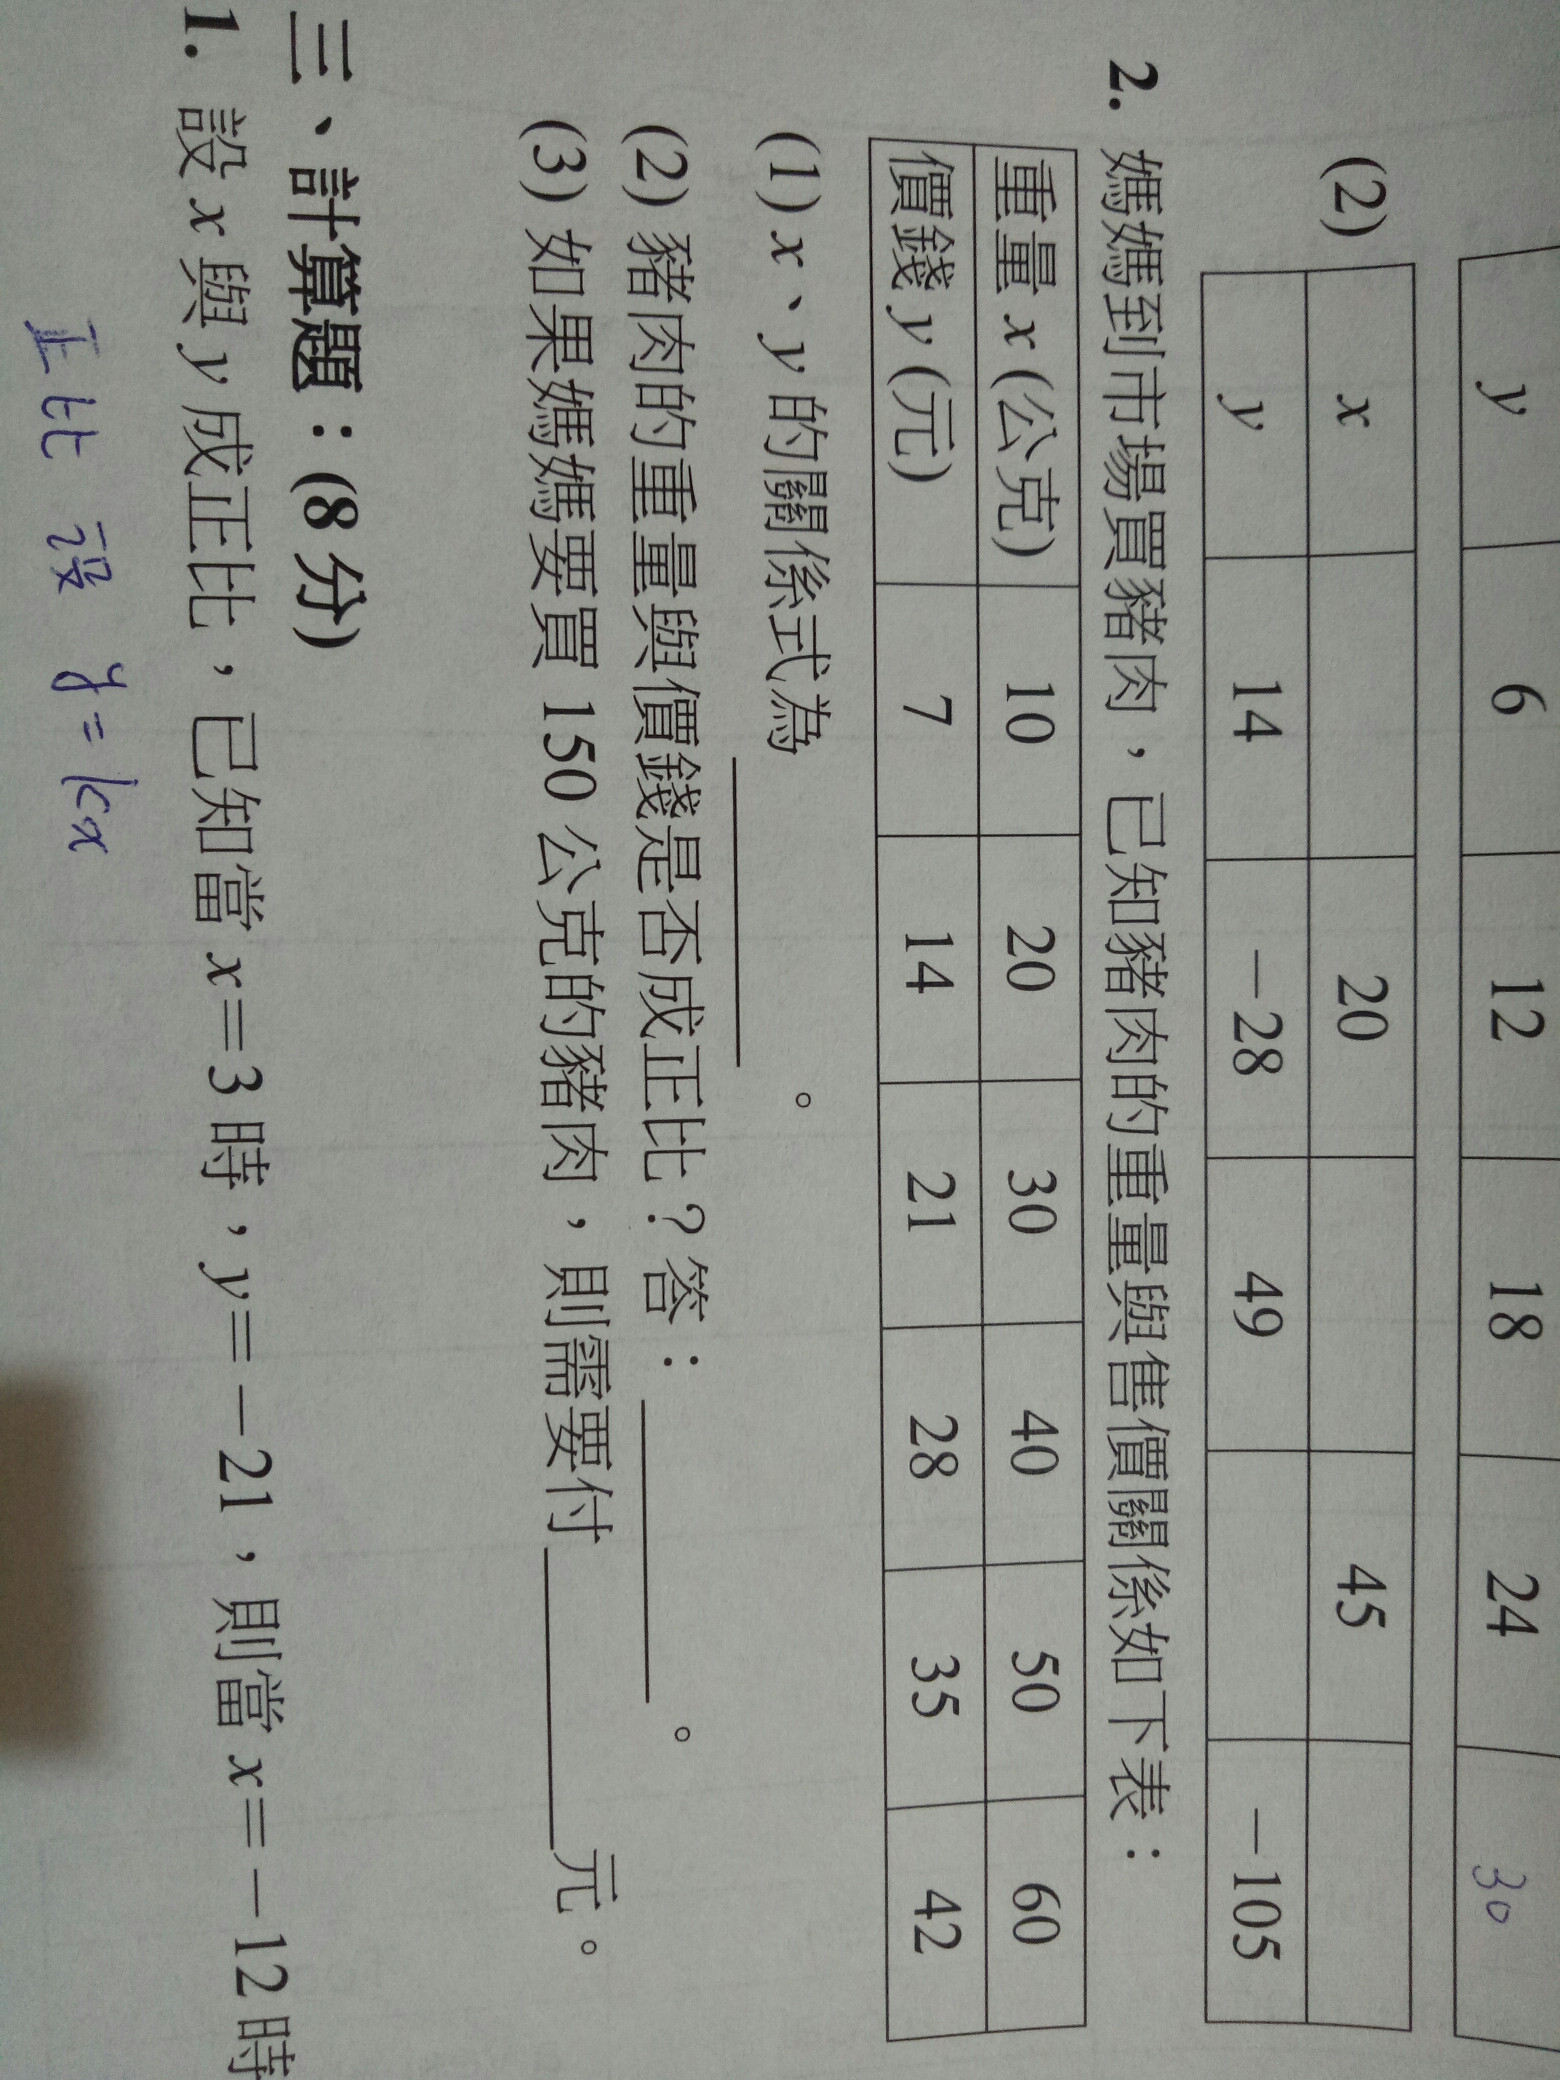 y 6 12 18 24 30
(2) x 20 45
y 14 －28 49 －105
2. 媽媽到市場買豬肉，已知豬肉的重量與售價關係如下表：
重量 x (公克) 10 20 30 40 50 60
價錢 y (元) 7 14 21 28 35 42
(1) x、y 的關係式為＿＿＿＿＿＿。
(2) 豬肉的重量與價錢是否成正比？答：＿＿＿＿＿＿。
(3) 如果媽媽要買 150 公克的豬肉，則需要付＿＿＿＿＿＿元。
三、計算題：(8 分)
1. 設 x 與 y 成正比，已知當 x＝3 時，y＝－21，則當 x＝－12 時
正比 設 y = kx